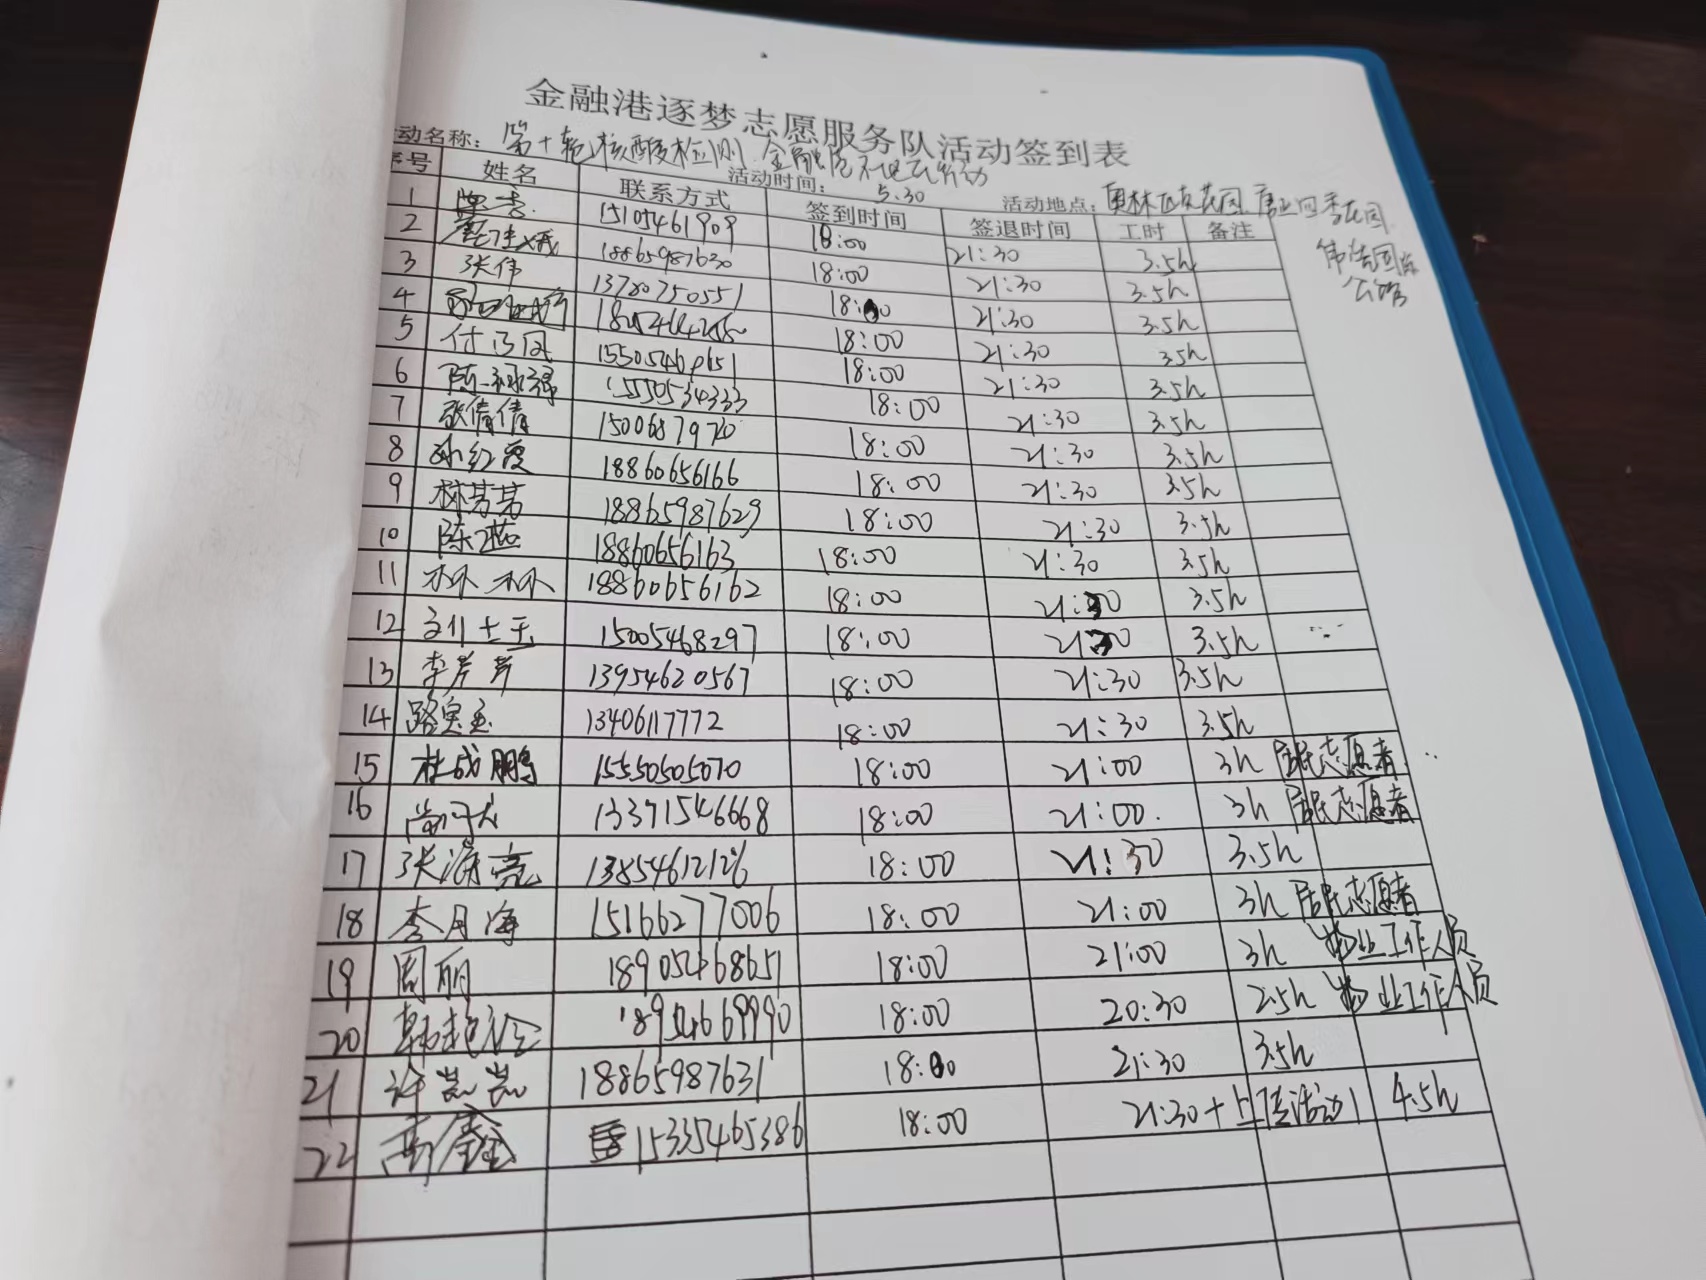 金融港逐梦志愿服务队活动签到表
动名称：第十轮核酸检测 金融港
活动时间：5.30 活动地点：奥林匹克花园 季花园
国际
公馆
序号 姓名 联系方式 签到时间 签退时间 工时 备注
1 15105461909 18:00 21:30 3.5h
2 18865987630 18:00 21:30 3.5h
3 张伟 13780750551 18:00 21:30 3.5h
4 18:00 21:30 3.5h
5 18:00 21:30 3.5h
6 15550534333 18:00 21:30 3.5h
7 张倩倩 18:00 21:30 3.5h
8 孙红霞 18860656166 18:00 21:30 3.5h
9 林芳芳 18865987629 18:00 21:30 3.5h
10 陈燕 18860656163 18:00 21:30 3.5h
11 林林 18860656162 18:00 21:30 3.5h
12 15005468297 18:00 21:30 3.5h
13 李芹芹 13954620567 18:00 21:30 3.5h
14 13406117772 18:00 21:30 3.5h
15 杜成鹏 15550505070 18:00 21:00 3h 居民志愿者
16 13371546668 18:00 21:00 3h 居民志愿者
17 张海亮 13854612126 18:00 21:30 3.5h
18 李月海 15166277006 18:00 21:00 3h 居民志愿者
19 周丽 18905468651 18:00 21:00 3h 物业工作人员
20 18954669990 18:00 20:30 2.5h 物业工作人员
21 许岚岚 18865987631 18:00 21:30 3.5h
22 高鑫 15335465386 18:00 21:30+上传活动1 4.5h